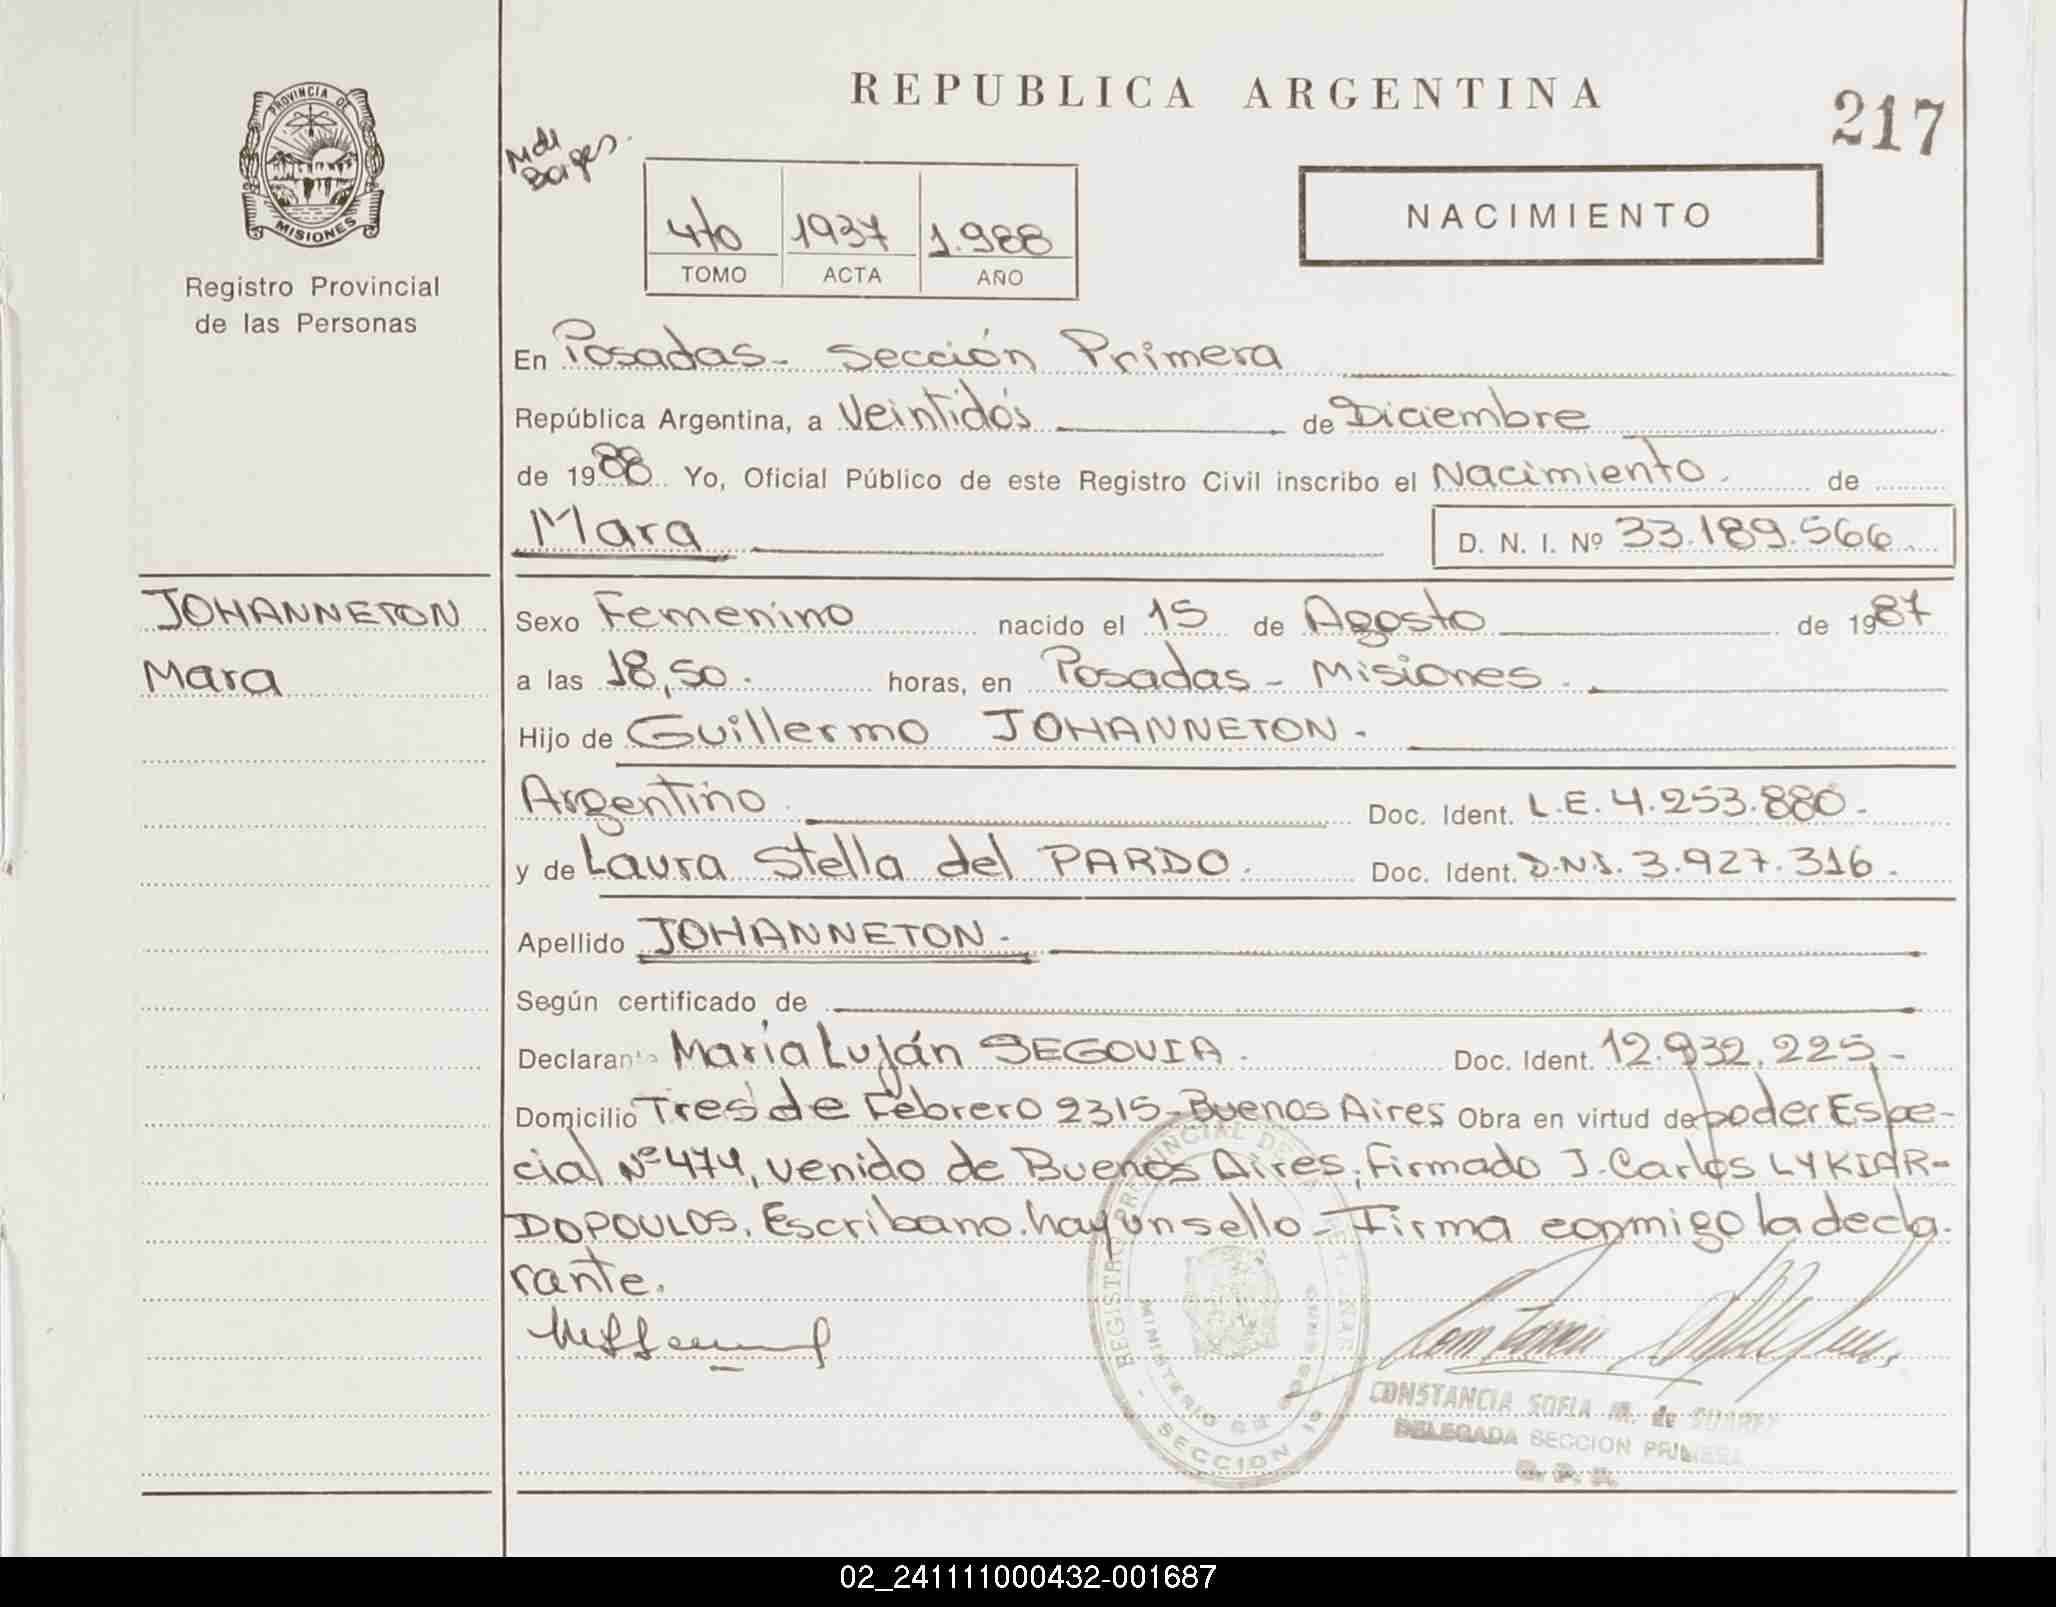 REPUBLICA ARGENTINA
217
PROVINCIA DE
MISIONES
Registro Provincial
de las Personas
NACIMIENTO
1937 1.988
TOMO ACTA AÑO
En Posadas - Sección Primera
República Argentina, a Veintidós de Diciembre
de 1988. Yo, Oficial Público de este Registro Civil inscribo el Nacimiento. de
Mara
D. N. I. Nº 33.189.566
JOHANNETON
Mara
Sexo Femenino nacido el 15 de Agosto de 1987
a las 18,50. horas, en Posadas - Misiones.
Hijo de Guillermo JOHANNETON.
Argentino Doc. Ident. L.E. 4.253.880.-
y de Laura Stella del PARDO. Doc. Ident. D.N.I. 3.927.316.
Apellido JOHANNETON.
Según certificado de
Declarante María Luján SEGOVIA. Doc. Ident. 12.932.225.-
Domicilio Tres de Febrero 2315 - Buenos Aires Obra en virtud de poder Espe-
cial Nº 474, venido de Buenos Aires, firmado J. Carlos LYKIAR-
DOPOULOS. Escribano. hay un sello - Firma conmigo la decla-
rante.
CONSTANCIA SOFIA M. de SUAREZ
DELEGADA SECCION PRIMERA
R. P. P.
SECCION 1º
02_241111000432-001687